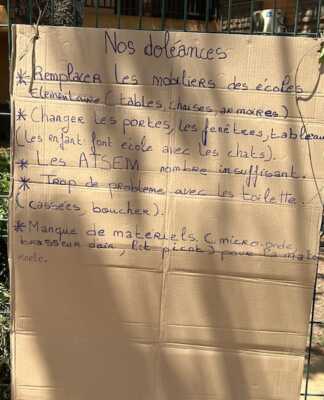 Nos doléances
* Remplacer les mobiliers des écoles
Elementaire (tables, chaises, armoires)
* Changer les portes, les fenêtres, tableau
(les enfant font ecole avec les chats).
* Les ATSEM nombre insuffisant.
* Trop de probleme avec les toilette.
(cassées, boucher).
* Manque de materiels, (micro-onde,
brasseur dair, lit picot) pour la mater
nelle.